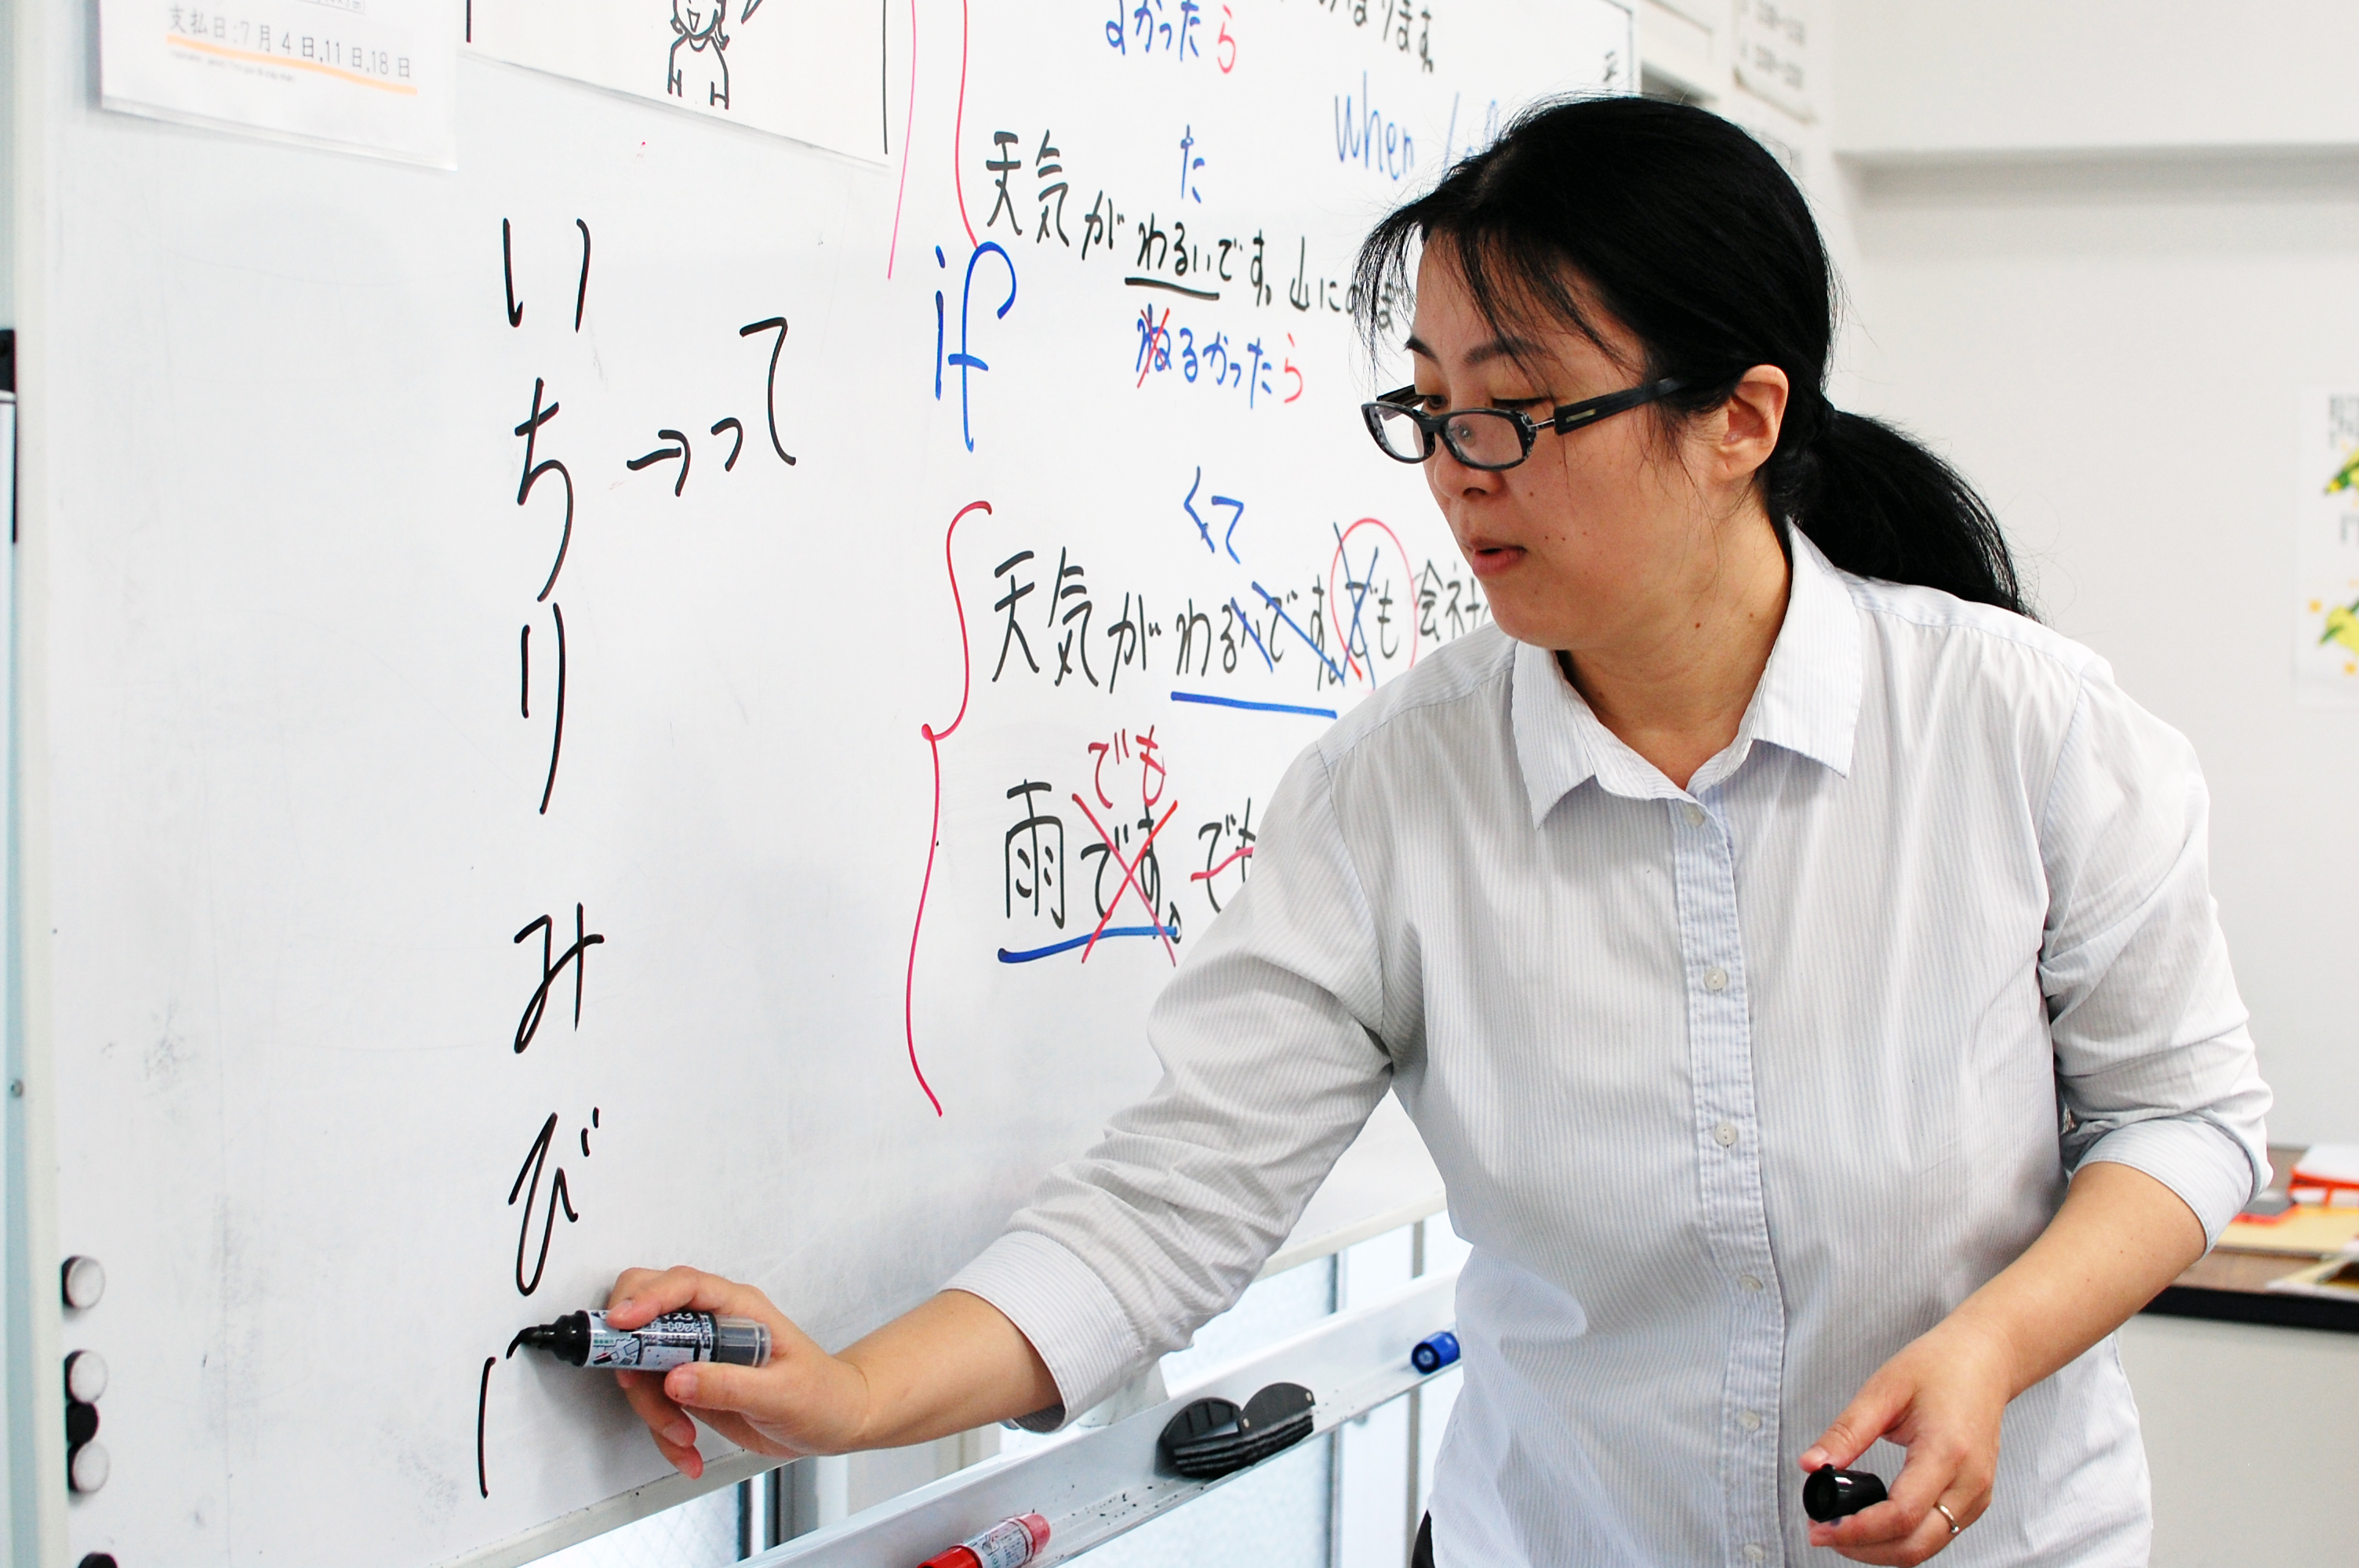 支払日:7月4日,11日,18日
い
ち→って
り
み
び
よかったら
ります。
when
た
天気がわるいです。山に
るかったら
if
くて
天気がわるいです。でも 会社
でも
雨です。でも